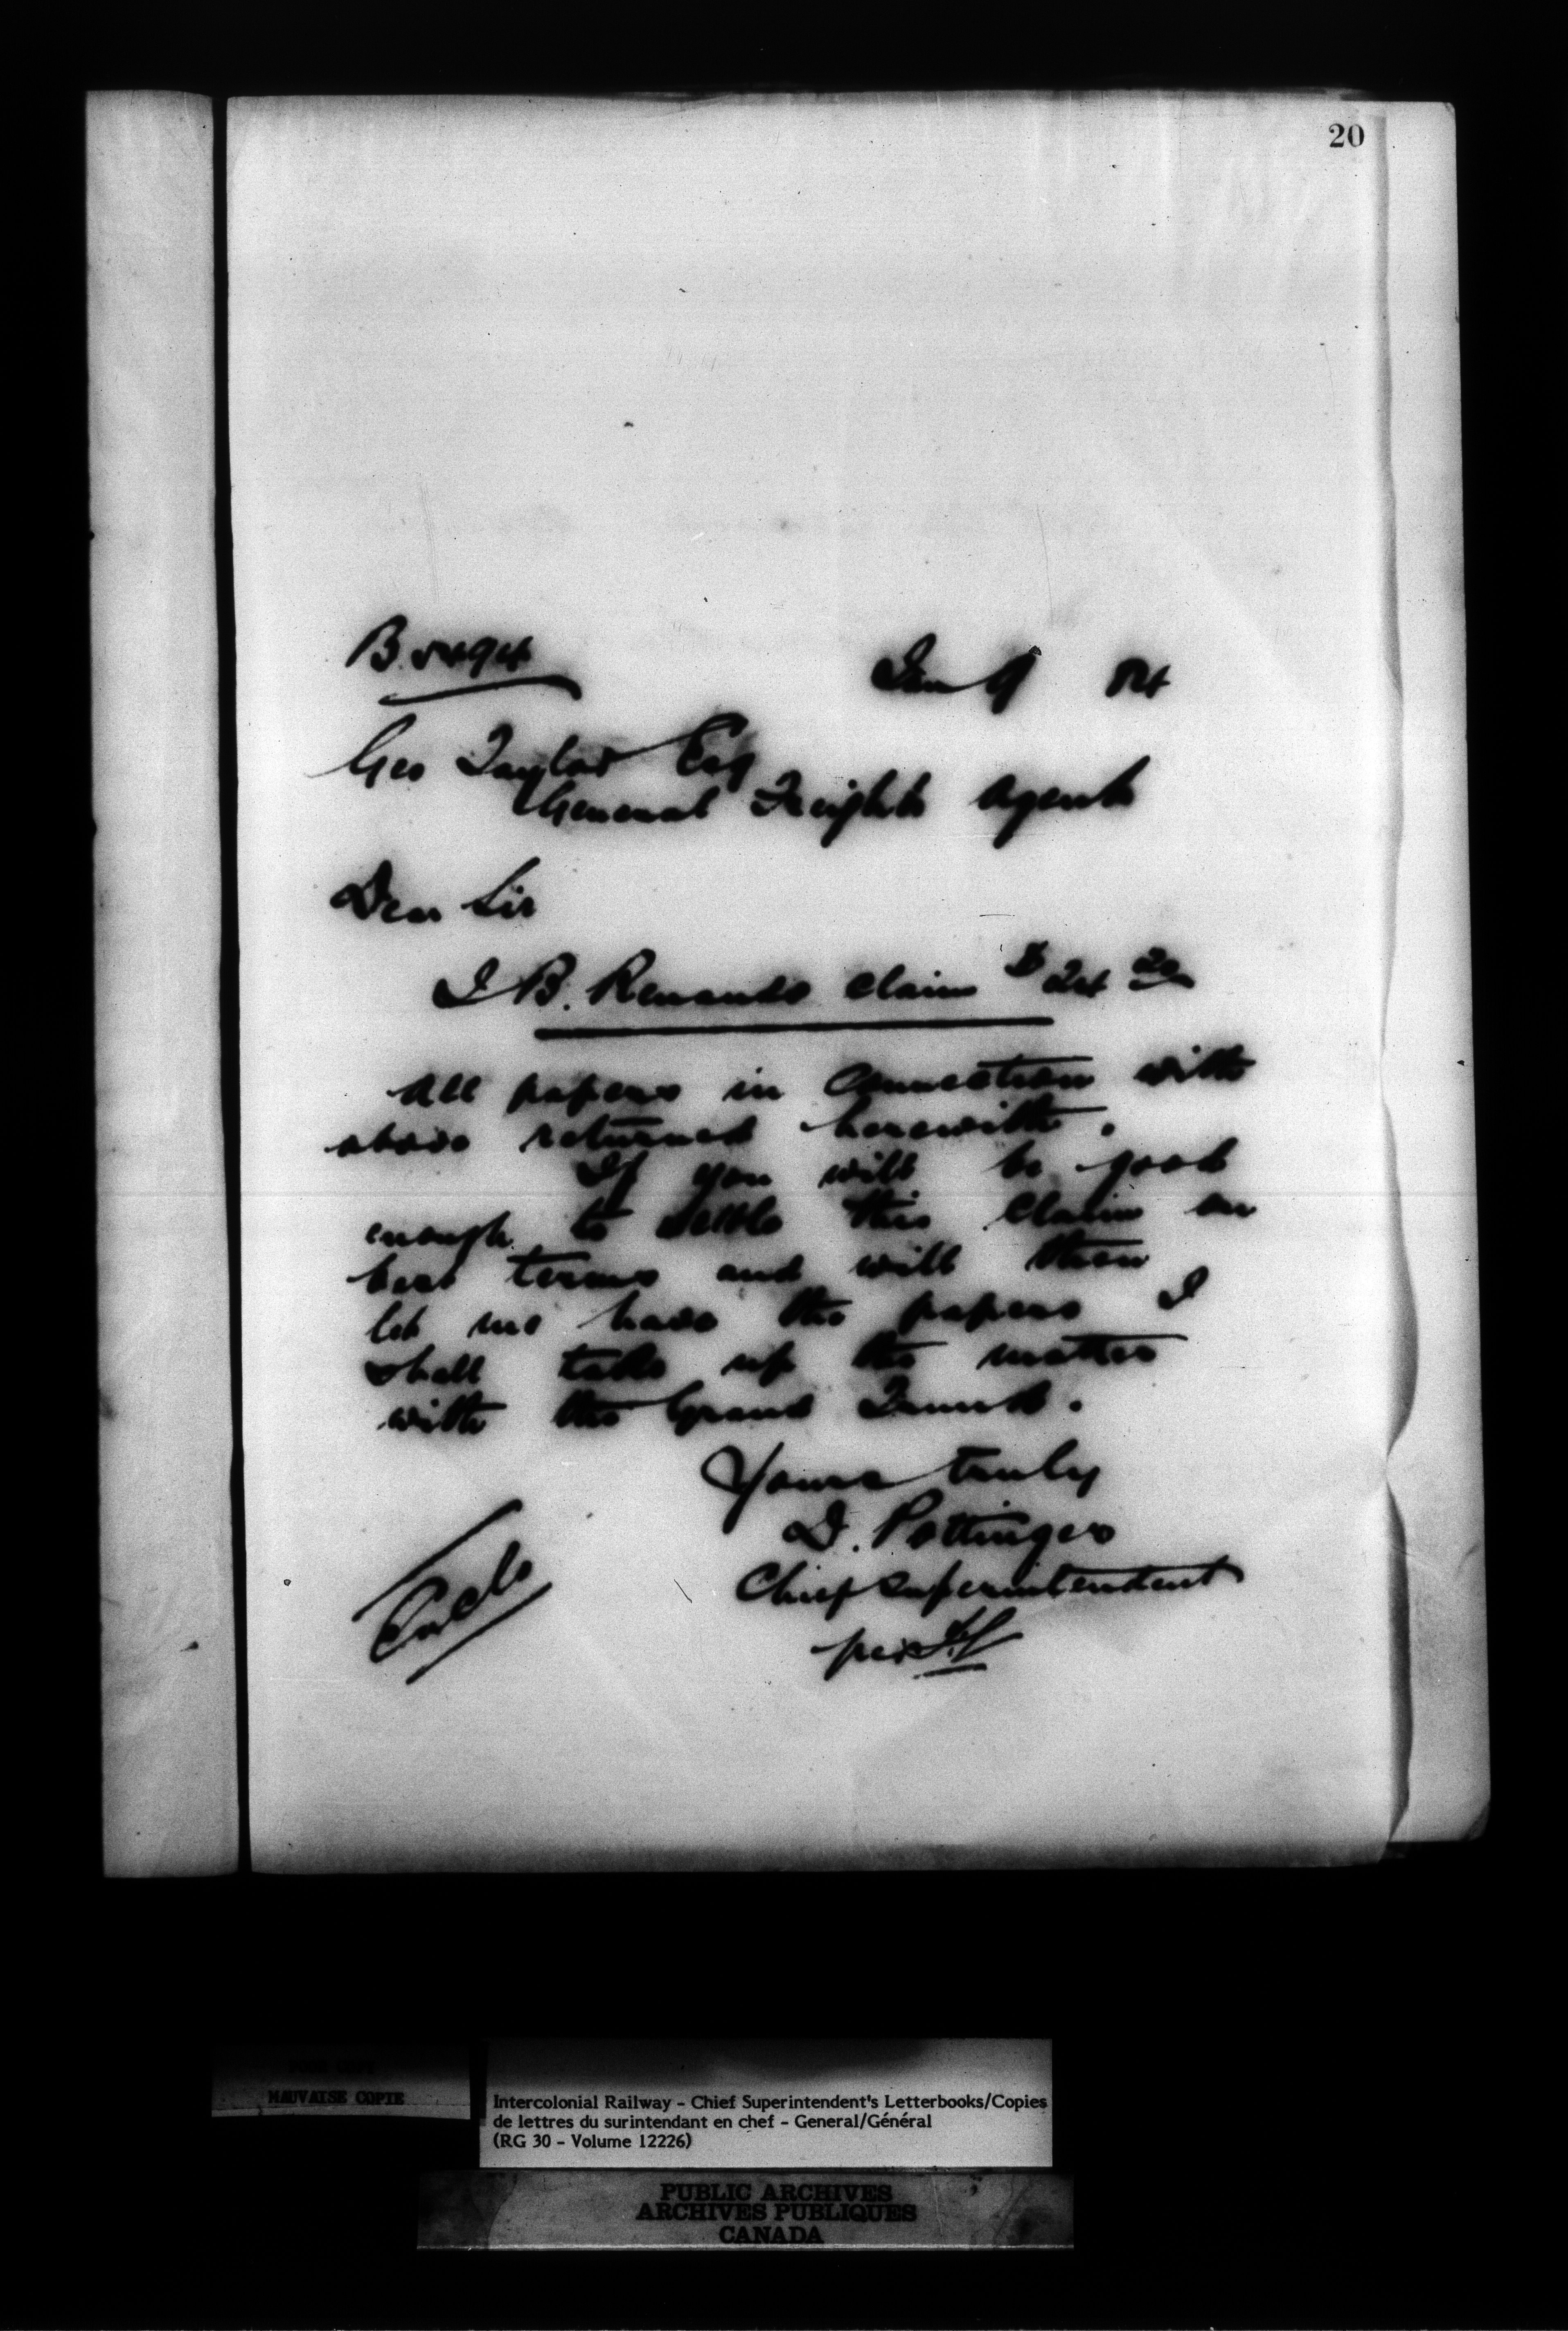 20
B. 5494
Jan 9 84
Geo Taylor Esq
General Freight Agent
Dear Sir
J B. Renauds Claim $24 20
All papers in Connection with
above returned herewith.
If you will be good
enough to settle this Claim on
best terms and will then
let me have the papers I
shall take up the matter
with the Grand Trunk.
Yours truly
D. Pottinger
Chief Superintendent
per
Encls
MAUVAISE COPIE
Intercolonial Railway - Chief Superintendent's Letterbooks/Copies
de lettres du surintendant en chef - General/Général
(RG 30 - Volume 12226)
PUBLIC ARCHIVES
ARCHIVES PUBLIQUES
CANADA